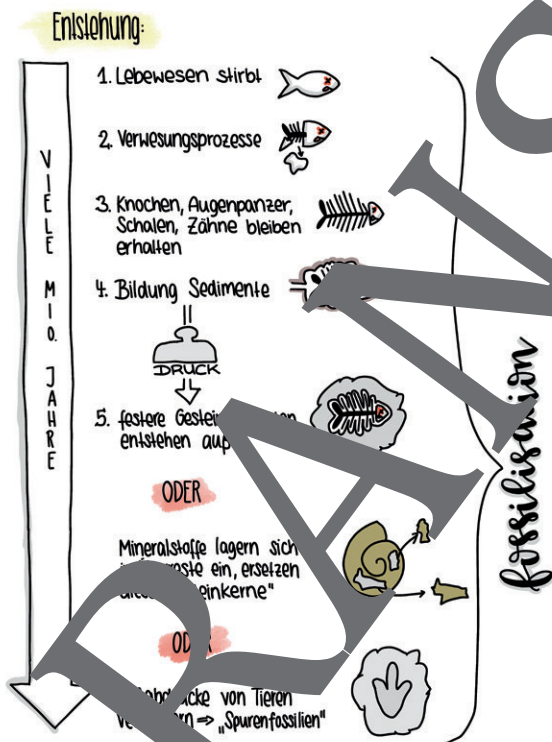 Entstehung:
VIELE MIO. JAHRE
1. Lebewesen stirbt
2. Verwesungsprozesse
3. Knochen, Augenpanzer,
Schalen, Zähne bleiben
erhalten
4. Bildung Sedimente
DRUCK
5. festere
entstehen
ODER
Mineralstoffe lagern sich
ein, ersetzen
ODER
von Tieren
⇒ „Spurenfossilien"
fossilisation